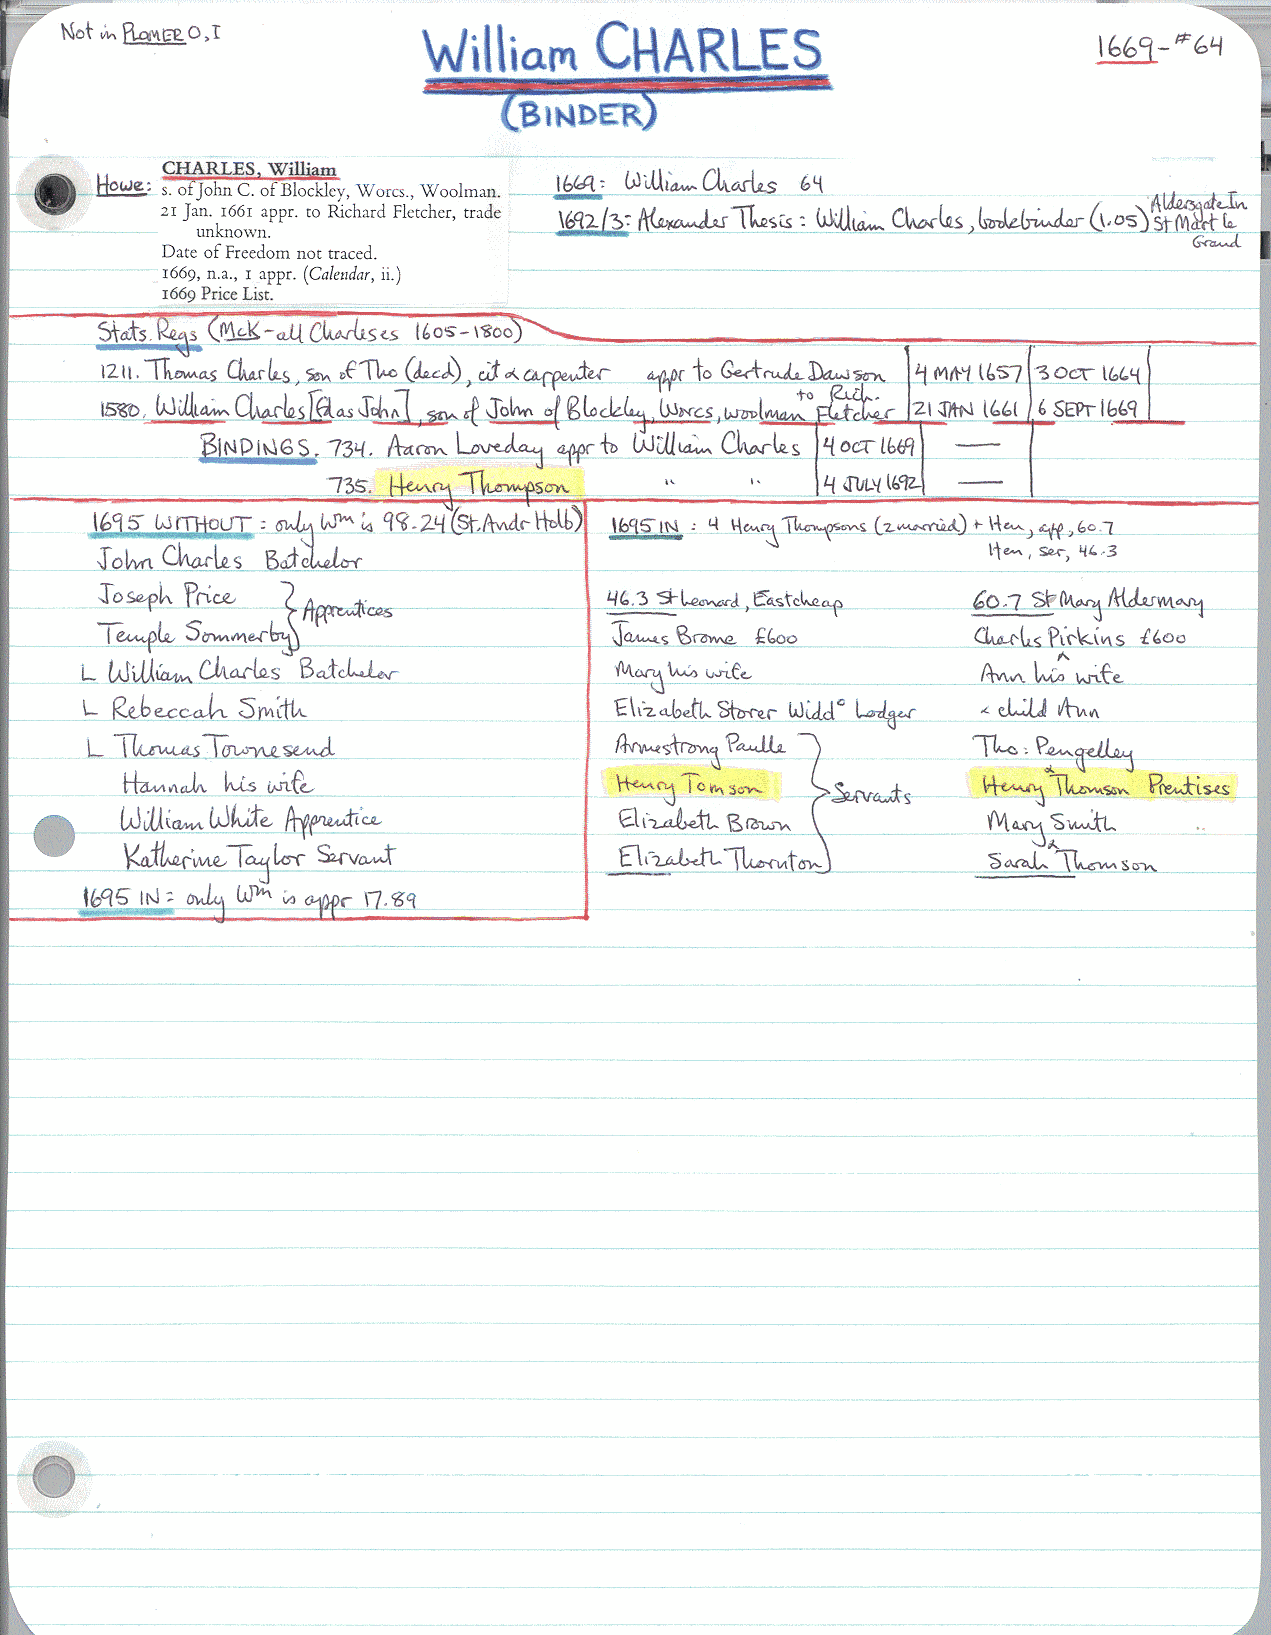 Not in PLOMER O, I
William CHARLES
(BINDER)
1669 - #64
Howe:
CHARLES, William
s. of John C. of Blockley, Worcs., Woolman.
21 Jan. 1661 appr. to Richard Fletcher, trade
unknown.
Date of Freedom not traced.
1669, n.a., 1 appr. (Calendar, ii.)
1669 Price List.
1669: William Charles 64
1692/3: Alexander Thesis: William Charles, bookebinder (1.05) Aldersgate In
St Mart le
Grand
Stats. Regs (McK - all Charleses 1605-1800)
1211. Thomas Charles, son of Tho (decd), cit & carpenter appr to Gertrude Dawson 4 MAY 1657 3 OCT 1664
1580. William Charles [Gl as John], son of John of Blockley, Worcs, woolman to Rich. Fletcher 21 JAN 1661 6 SEPT 1669
BINDINGS. 734. Aaron Loveday appr to William Charles 4 OCT 1669 —
735. Henry Thompson " " 4 JULY 1692 —
1695 WITHOUT: only Wm is 98.24 (St. Andr Holb)
John Charles Batchelor
Joseph Price
Temple Sommerby } Apprentices
L William Charles Batchelor
L Rebeccah Smith
L Thomas Townesend
Hannah his wife
William White Apprentice
Katherine Taylor Servant
1695 IN: only Wm is appr 17.89
1695 IN: 4 Henry Thompsons (2 married) + Hen, app, 60.7
Hen, ser, 46.3
46.3 St Leonard, Eastcheap
James Brome £600
Mary his wife
Elizabeth Storer Widdo Lodger
Armestrong Paulle
Henry Tomson
Elizabeth Brown
Elizabeth Thornton } Servants
60.7 St Mary Aldermary
Charles Pirkins £600
Ann his wife
& child Ann
Tho: Pengelley
& Henry Thomson Prentises
Mary Smith
& Sarah Thomson